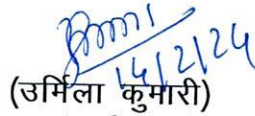 14/2/24
(उर्मिला कुमारी)